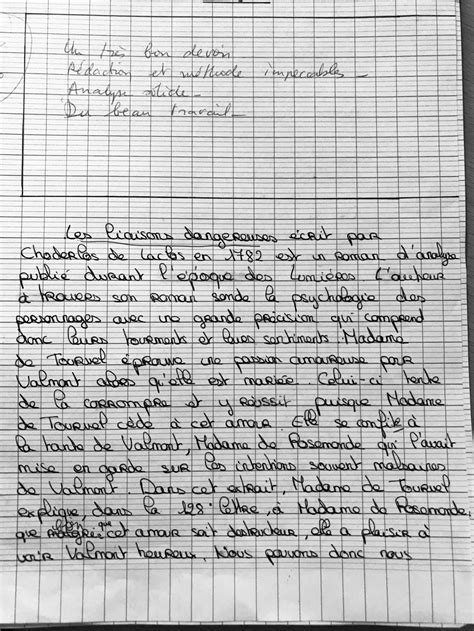 Un très bon devoir.
Rédaction et méthode impeccables.
Analyse solide.
Du beau travail.
Les liaisons dangereuses écrit par
Choderlos de Laclos en 1782 est un roman d'analyse
publié durant l'époque des Lumières. L'auteur
à travers son roman sonde la psychologie des
personnages avec une grande précision qui comprend
donc leurs tourments et leurs sentiments. Madame
de Tourvel éprouve une passion amoureuse pour
Valmont alors qu'elle est mariée. Celui-ci tente
de la corrompre et y réussit puisque Madame
de Tourvel cède à cet amour. Elle se confie à
la tante de Valmont, Madame de Rosemonde qui l'avait
mise en garde sur les intentions souvent malsaines
de Valmont. Dans cet extrait, Madame de Tourvel
explique dans la 128e lettre, à Madame de Rosemonde,
que bien que cet amour soit destructeur, elle a plaisir à
voir Valmont heureux. Nous pouvons donc nous